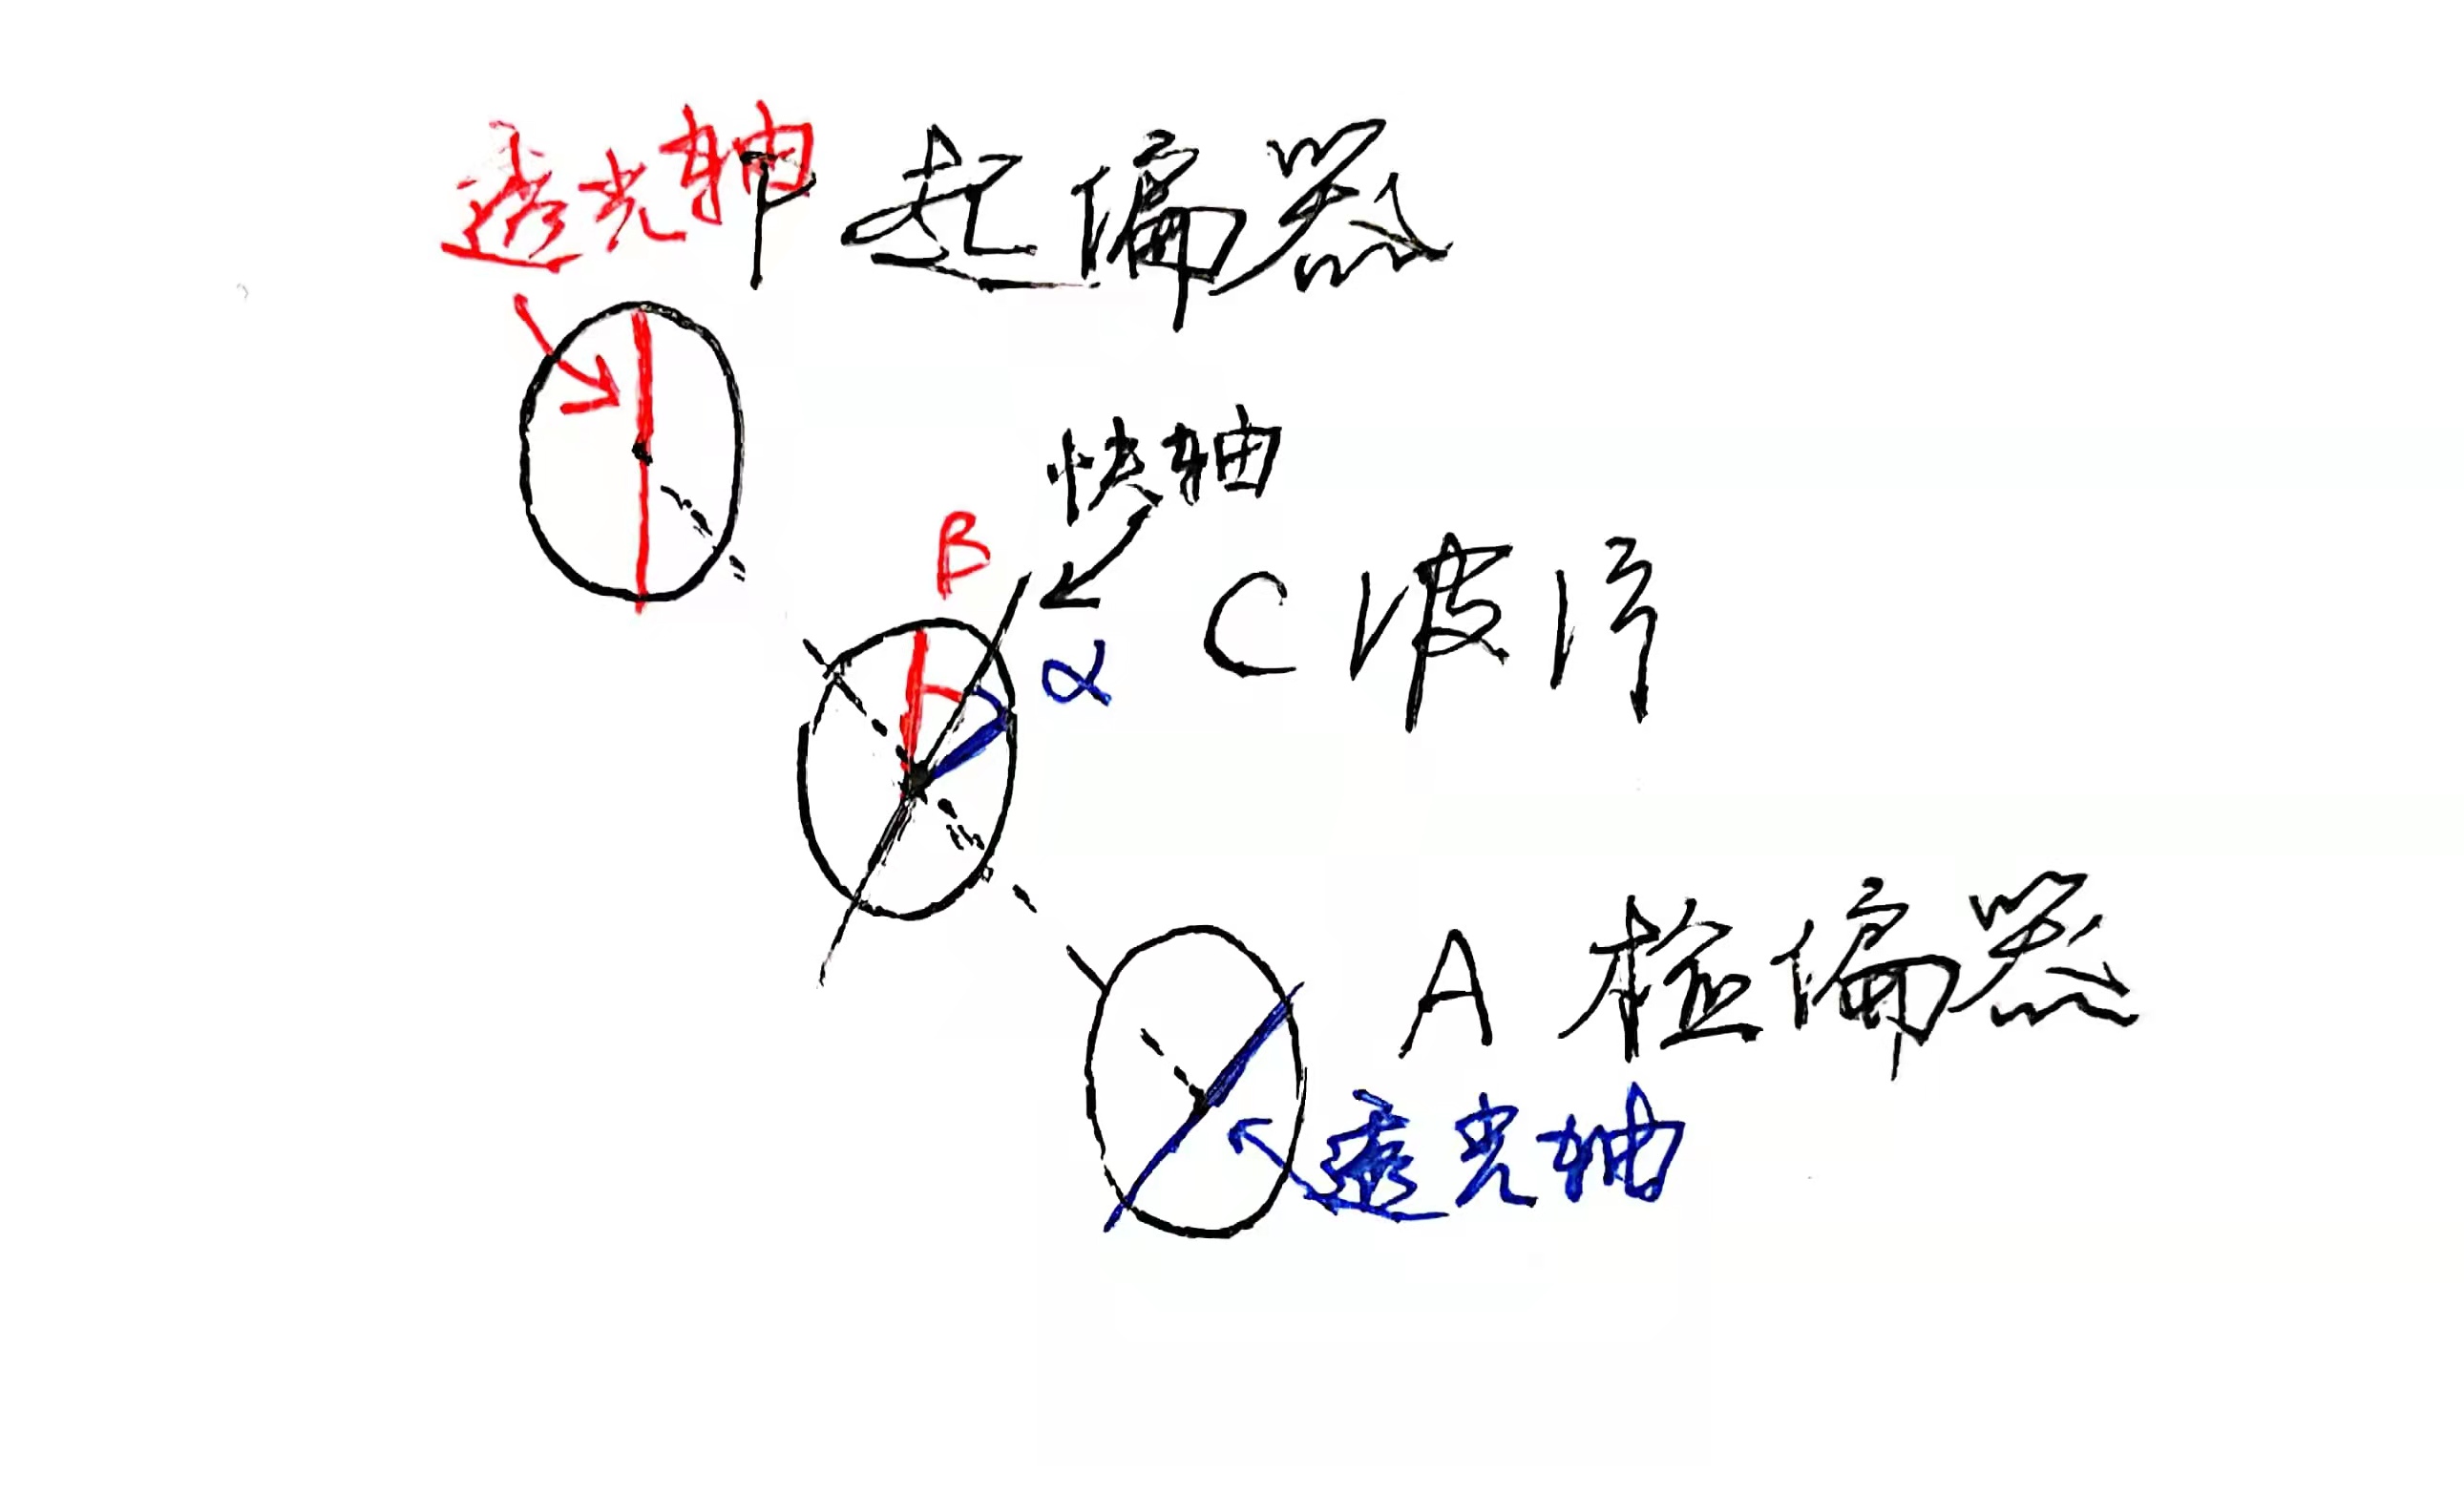 透光轴
P 起偏器
快轴
β
α
C 波片
A 检偏器
透光轴